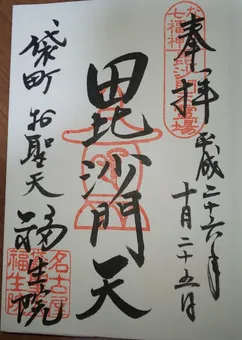 奉拝
平成二十六年
十月二十五日
毘沙門天
袋町 お聖天
福生院
名古屋
福生